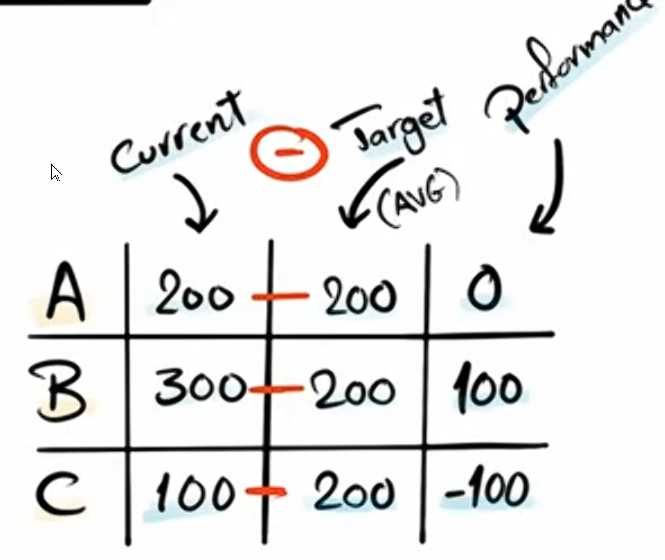 Current - Target Performanc
(AVG)
A 200 - 200 0
B 300 - 200 100
C 100 - 200 -100